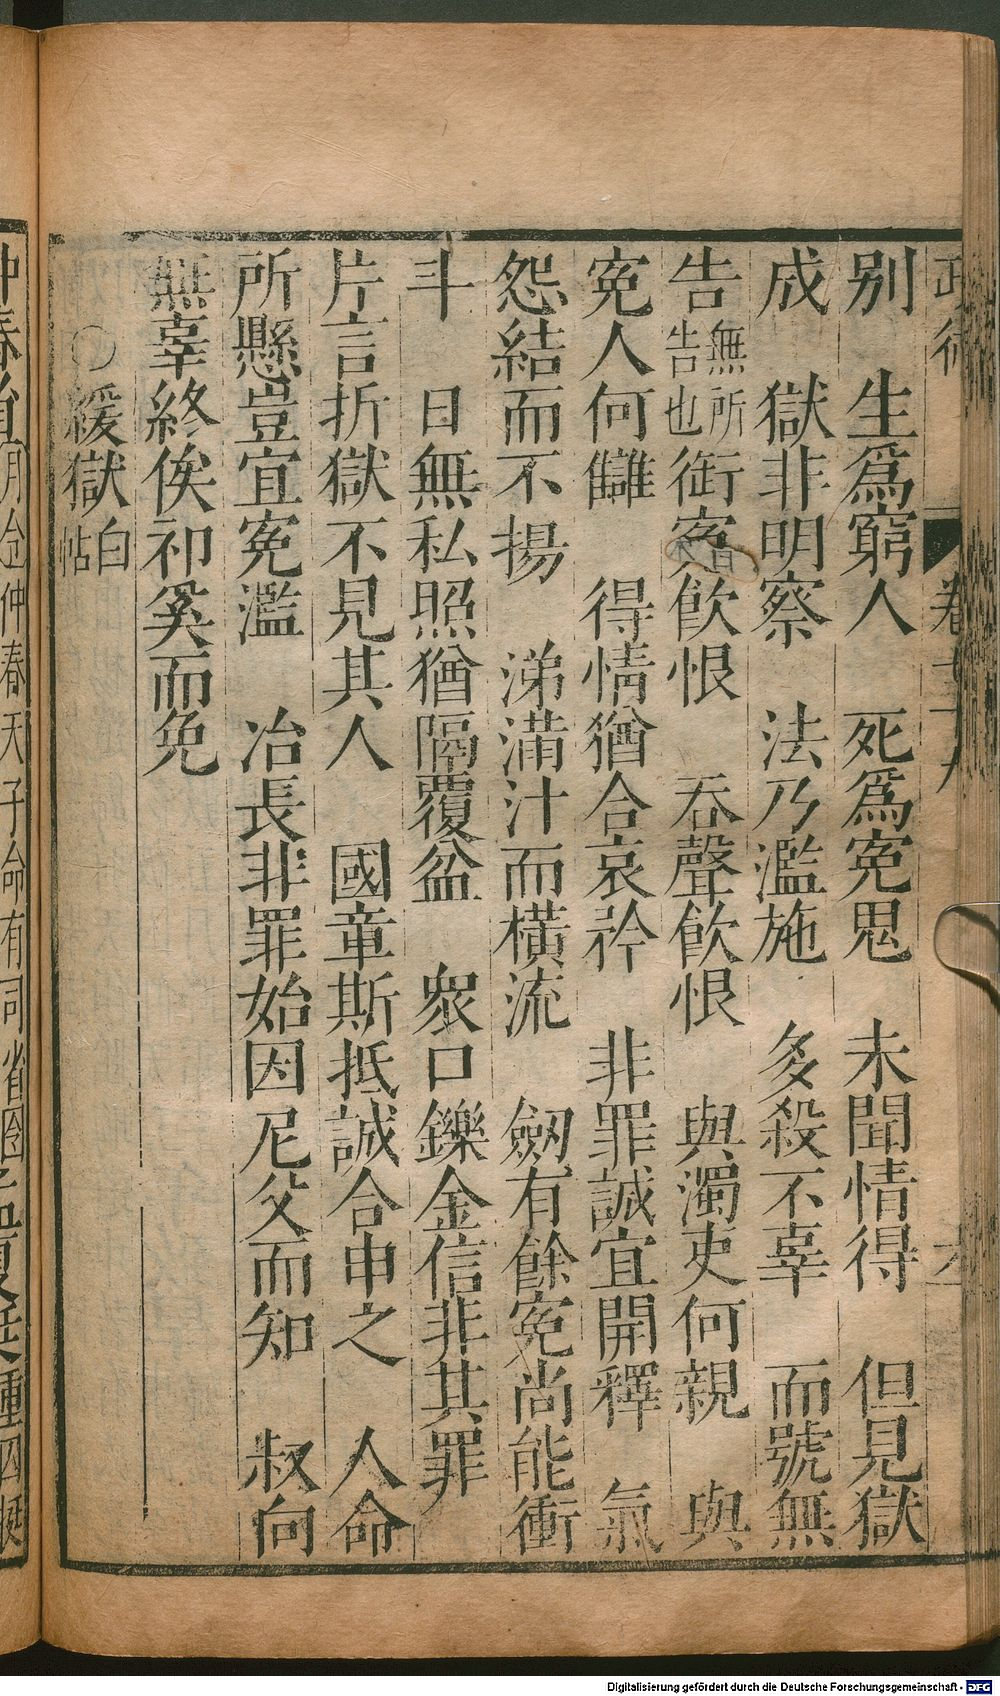 政術 卷十八 六
别 生爲窮人 死爲寃鬼 未聞情得 但見獄
成 獄非明察 法乃濫施 多殺不辜 而號無
告無所告也 銜寃飲恨 吞聲飲恨 與濁吏何親 與
寃人何讎 得情猶合哀矜 非罪誠宜開釋 氣
怨結而不揚 涕滿汁而橫流 劔有餘寃尚能衝
斗 日無私照猶隔覆盆 衆口鑠金信非其罪
片言折獄不見其人 國章斯抵誠合申之 人命
所懸豈宜寃濫 冶長非罪始因尼父而知 叔向
無辜終俟祁奚而免
○緩獄白帖
仲春省月令仲春天子命有司省囹
Digitalisierung gefördert durch die Deutsche Forschungsgemeinschaft - DFG